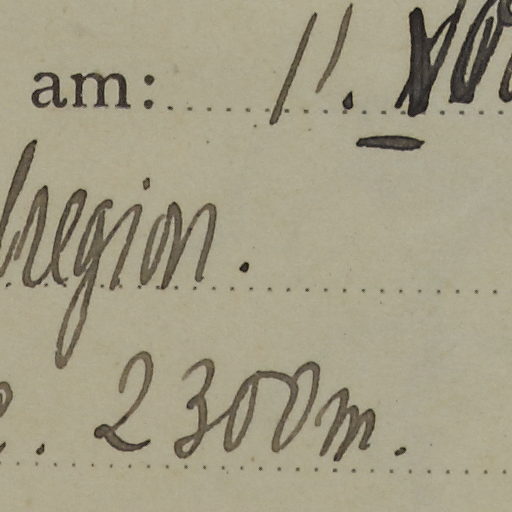 am: 11.
region.
. 2300m.